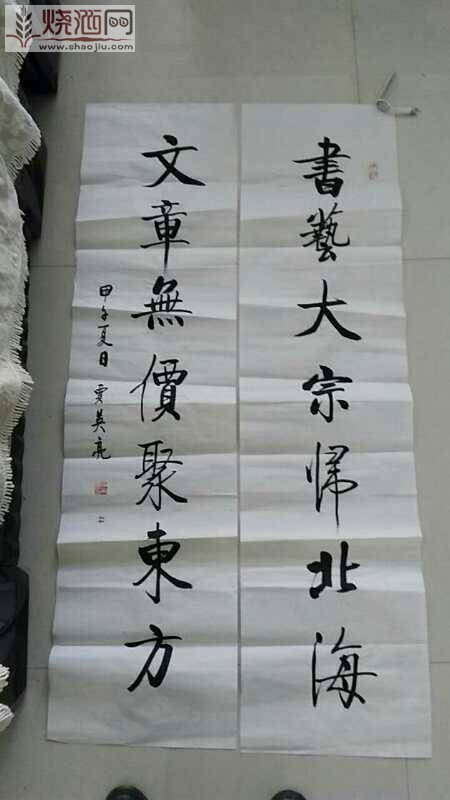 烧酒网
www.shaojiu.com
書藝大宗歸北海
文章無價聚東方
甲午夏日 賈英亮